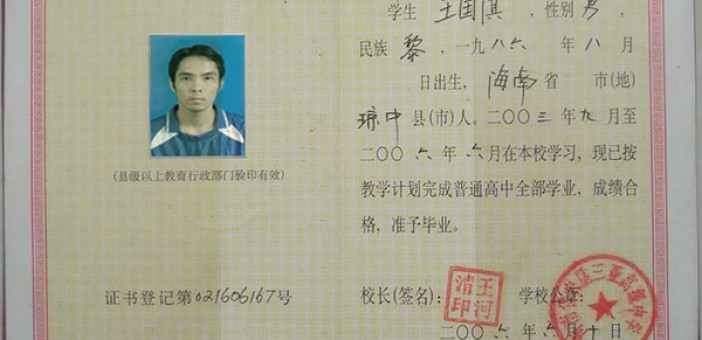 学生 王国淇 ，性别 男 ，
民族 黎 ，一九八六 年 八 月
日出生， 海南 省 市(地)
琼中 县(市)人。二〇〇三 年 九 月至
二〇〇六 年 六 月在本校学习，现已按
教学计划完成普通高中全部学业，成绩合
格，准予毕业。
(县级以上教育行政部门验印有效)
证书登记第021606167号
校长(签名)：
王河清印
学校公章：
二〇〇六 年 六 月 十 日